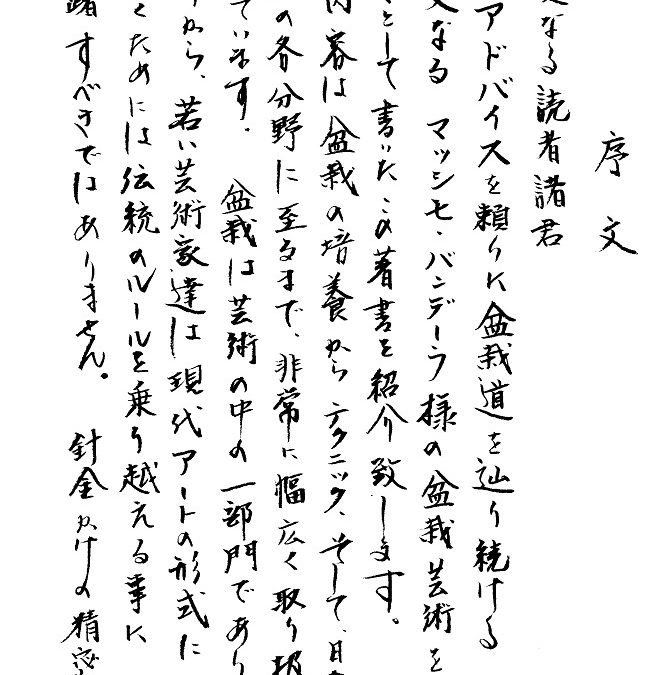 序文
なる読者諸君
アドバイスを頼りに盆栽道を辿り続ける
なる マッシモ・バンデーラ様の盆栽芸術を
として書いたこの著書を紹介致します。
容は盆栽の培養から テクニック、そして、日
の各分野に至るまで、非常に幅広く取り扱
ています。 盆栽は芸術の中の一部門であり
から、若い芸術家達は現代アートの形式に
くためには伝統のルールを乗り越える事に
躇すべきではありません。 針金かけの精密